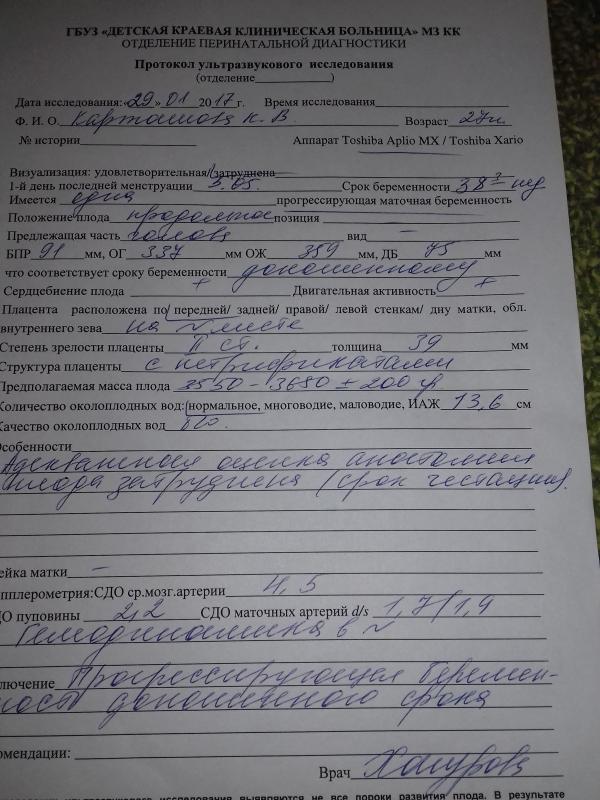 ГБУЗ «ДЕТСКАЯ КРАЕВАЯ КЛИНИЧЕСКАЯ БОЛЬНИЦА» МЗ КК
ОТДЕЛЕНИЕ ПЕРИНАТАЛЬНОЙ ДИАГНОСТИКИ
Протокол ультразвукового исследования
(отделение____________)
Дата исследования: «29» 01 2017 г. Время исследования
Ф. И. О. К. В. Возраст 27
№ истории Аппарат Toshiba Aplio MX / Toshiba Xario
Визуализация: удовлетворительная/ затруднена
1-й день последней менструации 5.05. Срок беременности 38 нед
Имеется одна прогрессирующая маточная беременность
Положение плода продольное позиция
Предлежащая часть головка вид –
БПР 91 мм, ОГ 337 мм ОЖ 359 мм, ДБ 75 мм
что соответствует сроку беременности доношенному
Сердцебиение плода + Двигательная активность +
Плацента расположена по/ передней/ задней/ правой/ левой стенкам/ дну матки, обл.
внутреннего зева на месте
Степень зрелости плаценты II ст. толщина 39 мм
Структура плаценты с петрификатами
Предполагаемая масса плода 3550 - 3680 ± 200 гр
Количество околоплодных вод: нормальное, многоводие, маловодие, ИАЖ 13,6 см
Качество околоплодных вод
Особенности
Адекватная оценка анатомии
плода затруднена (срок гестации).
ейка матки –
пплерометрия: СДО ср.мозг.артерии 4,5
ДО пуповины 2,2 СДО маточных артерий d/s 1,7/1,9
Гемодинамика в N
лючение Прогрессирующая беремен-
ность доношенного срока
омендации:
Врач
ультразвукового исследования выявляются не все пороки развития плода. В результате